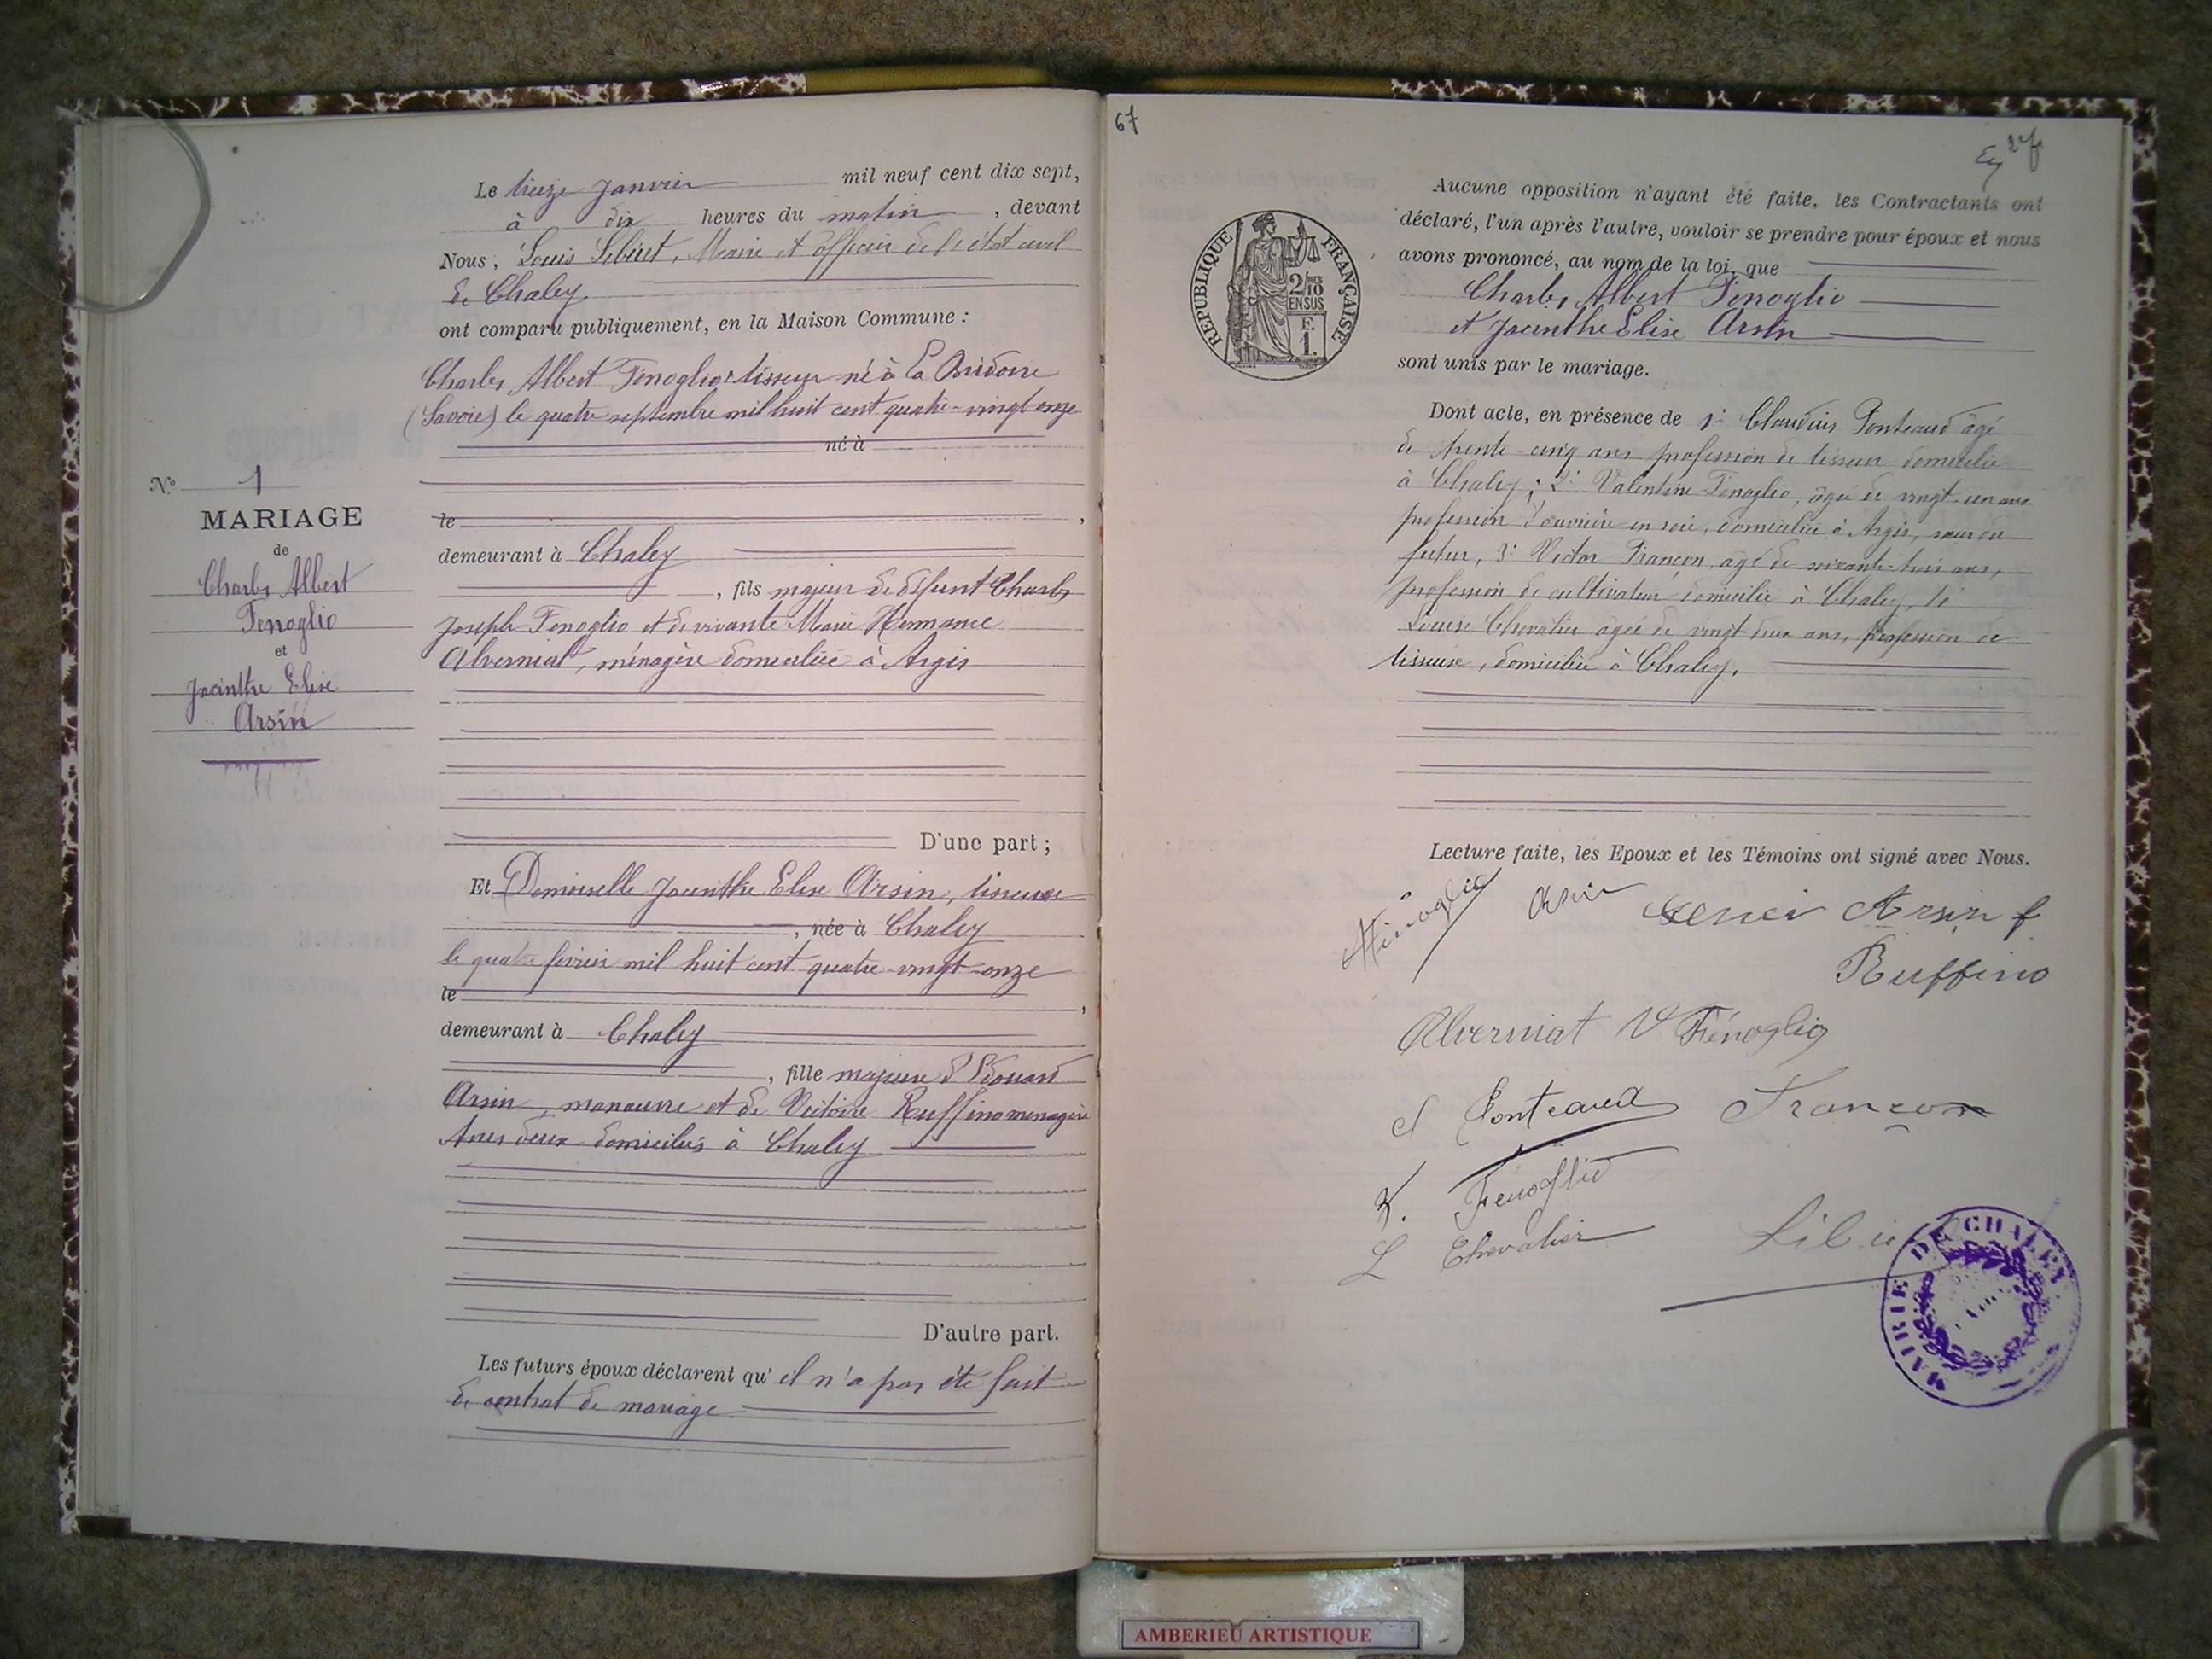 Le treize Janvier mil neuf cent dix sept,
à dix heures du matin, devant
Nous, Louis Libéet, Maire et officier de l'état civil
de Chaley
ont comparu publiquement, en la Maison Commune :
Charles Albert Fenoglio tisseur né à La Bridoire
(Savoie) le quatre septembre mil huit cent quatre-vingt onze
né à
le ,
demeurant à Chaley
, fils majeur de défunt Charles
Joseph Fenoglio et de vivante Marie Hermance
Alverniat, ménagère domiciliée à Argis
N° 1
MARIAGE
de
Charles Albert
Fenoglio
et
Jacinthe Elise
Arsin
D'une part ;
Et Demoiselle Jacinthe Elise Arsin, tisseuse
, née à Chaley
le quatre février mil huit cent quatre-vingt-onze
le ,
demeurant à Chaley
, fille majeure d'Edouard
Arsin, manœuvre et de Victoire Ruffino ménagère
tous deux domiciliés à Chaley
D'autre part.
Les futurs époux déclarent qu'il n'a pas été fait
de contrat de mariage
67
REPUBLIQUE FRANÇAISE
2/10 EN SUS
F. 1.
Aucune opposition n'ayant été faite, les Contractants ont
déclaré, l'un après l'autre, vouloir se prendre pour époux et nous
avons prononcé, au nom de la loi, que
Charles Albert Fenoglio
et Jacinthe Elise Arsin
sont unis par le mariage.
Dont acte, en présence de 1° Claudius Ponteaud âgé
de trente-cinq ans profession de tisseur domicilié
à Chaley ; 2° Valentine Fenoglio, âgée de vingt-un ans
profession d'ouvrière en soie, domiciliée à Argis, sœur du
futur, 3° Victor Françon, âgé de soixante-trois ans,
profession de cultivateur domicilié à Chaley, 4°
Louise Chevalier âgée de vingt deux ans, profession de
tisseuse, domiciliée à Chaley.
Lecture faite, les Epoux et les Témoins ont signé avec Nous.
Fénoglio Arsin Arsin f
Ruffino
Alverniat V Fénoglio
Ponteaud Françon
Fenoglio
L Chevalier
MAIRIE DE CHALEY
AMBERIEU ARTISTIQUE